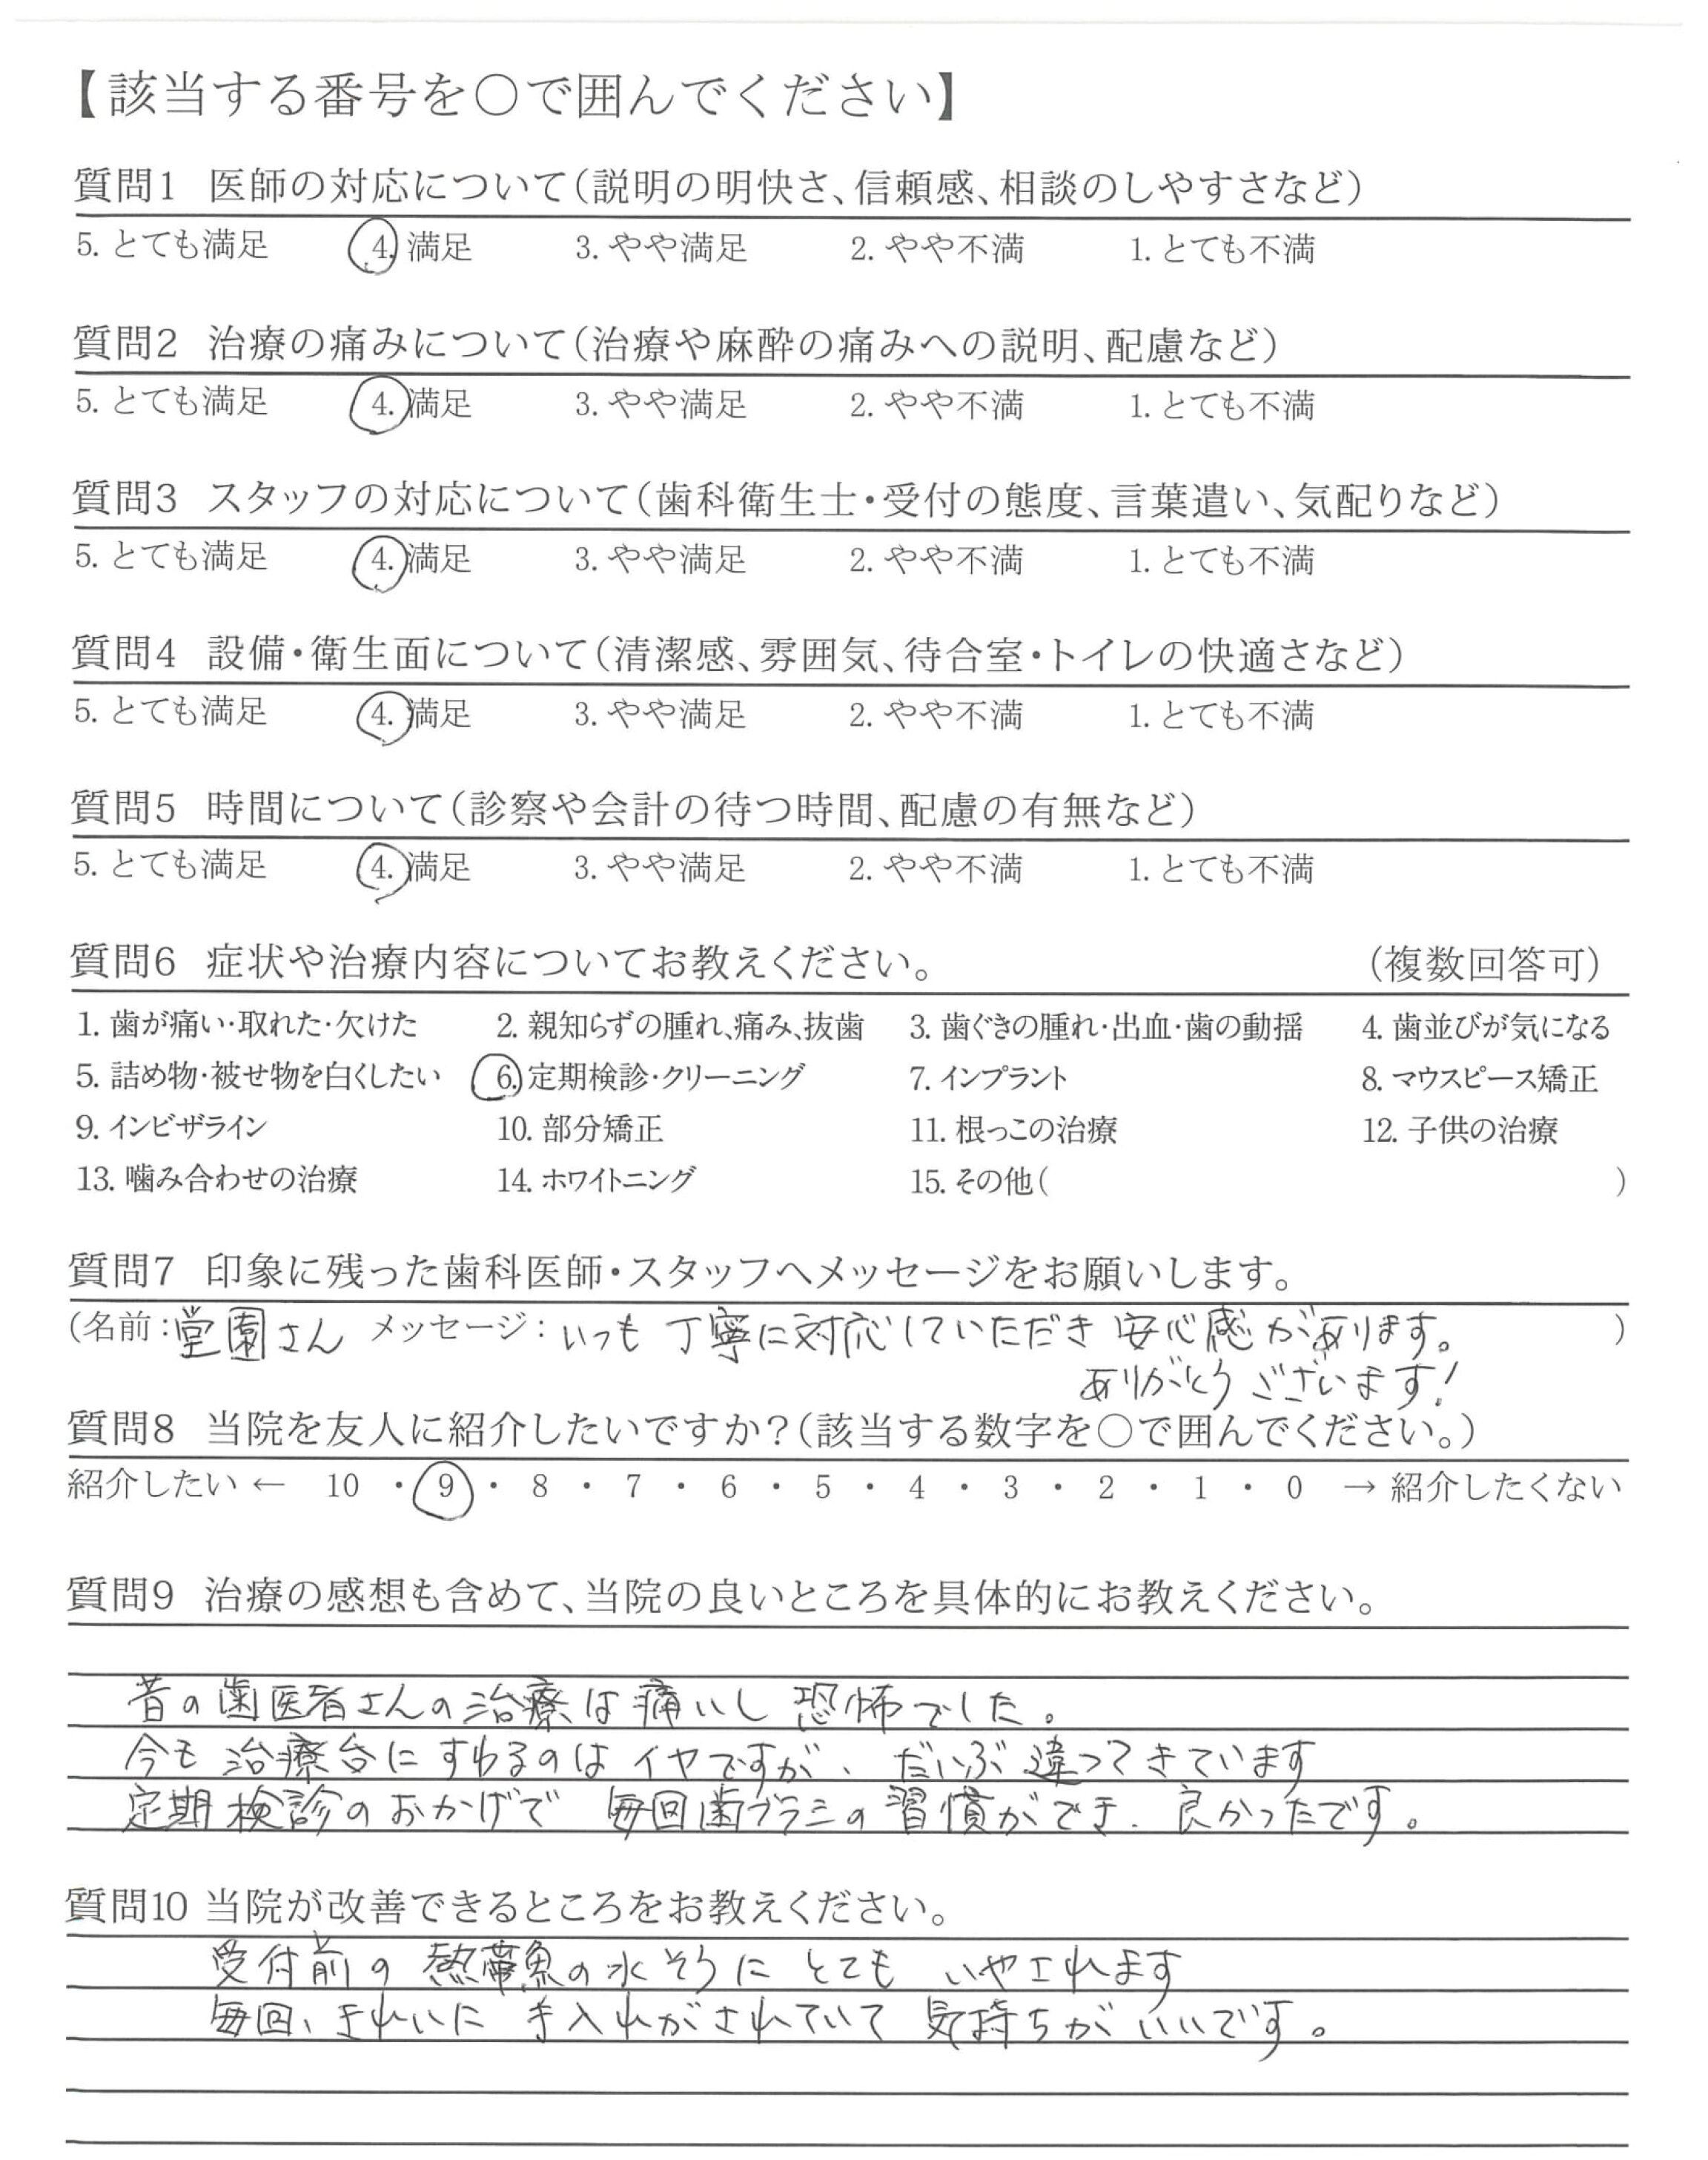 【該当する番号を○で囲んでください】
質問1 医師の対応について(説明の明快さ、信頼感、相談のしやすさなど)
5. とても満足 4. 満足 3. やや満足 2. やや不満 1. とても不満
質問2 治療の痛みについて(治療や麻酔の痛みへの説明、配慮など)
5. とても満足 4. 満足 3. やや満足 2. やや不満 1. とても不満
質問3 スタッフの対応について(歯科衛生士・受付の態度、言葉遣い、気配りなど)
5. とても満足 4. 満足 3. やや満足 2. やや不満 1. とても不満
質問4 設備・衛生面について(清潔感、雰囲気、待合室・トイレの快適さなど)
5. とても満足 4. 満足 3. やや満足 2. やや不満 1. とても不満
質問5 時間について(診察や会計の待つ時間、配慮の有無など)
5. とても満足 4. 満足 3. やや満足 2. やや不満 1. とても不満
質問6 症状や治療内容についてお教えください。 (複数回答可)
1. 歯が痛い・取れた・欠けた 2. 親知らずの腫れ、痛み、抜歯 3. 歯ぐきの腫れ・出血・歯の動揺 4. 歯並びが気になる
5. 詰め物・被せ物を白くしたい 6. 定期検診・クリーニング 7. インプラント 8. マウスピース矯正
9. インビザライン 10. 部分矯正 11. 根っこの治療 12. 子供の治療
13. 噛み合わせの治療 14. ホワイトニング 15. その他( )
質問7 印象に残った歯科医師・スタッフへメッセージをお願いします。
(名前：堂園さん メッセージ：いつも 丁寧に対応していただき 安心感があります。 )
ありがとうございます!
質問8 当院を友人に紹介したいですか？(該当する数字を○で囲んでください。)
紹介したい ← 10 ・ 9 ・ 8 ・ 7 ・ 6 ・ 5 ・ 4 ・ 3 ・ 2 ・ 1 ・ 0 → 紹介したくない
質問9 治療の感想も含めて、当院の良いところを具体的にお教えください。
昔の歯医者さんの治療は痛いし 恐怖でした。
今も 治療台に すわるのは イヤですが、だいぶ 違ってきています
定期検診のおかげで 毎回歯ブラシの習慣ができ、良かったです。
質問10 当院が改善できるところをお教えください。
受付前の 熱帯魚の水そうに とても いやされます
毎回、きれいに 手入れがされていて 気持ちが いいです。